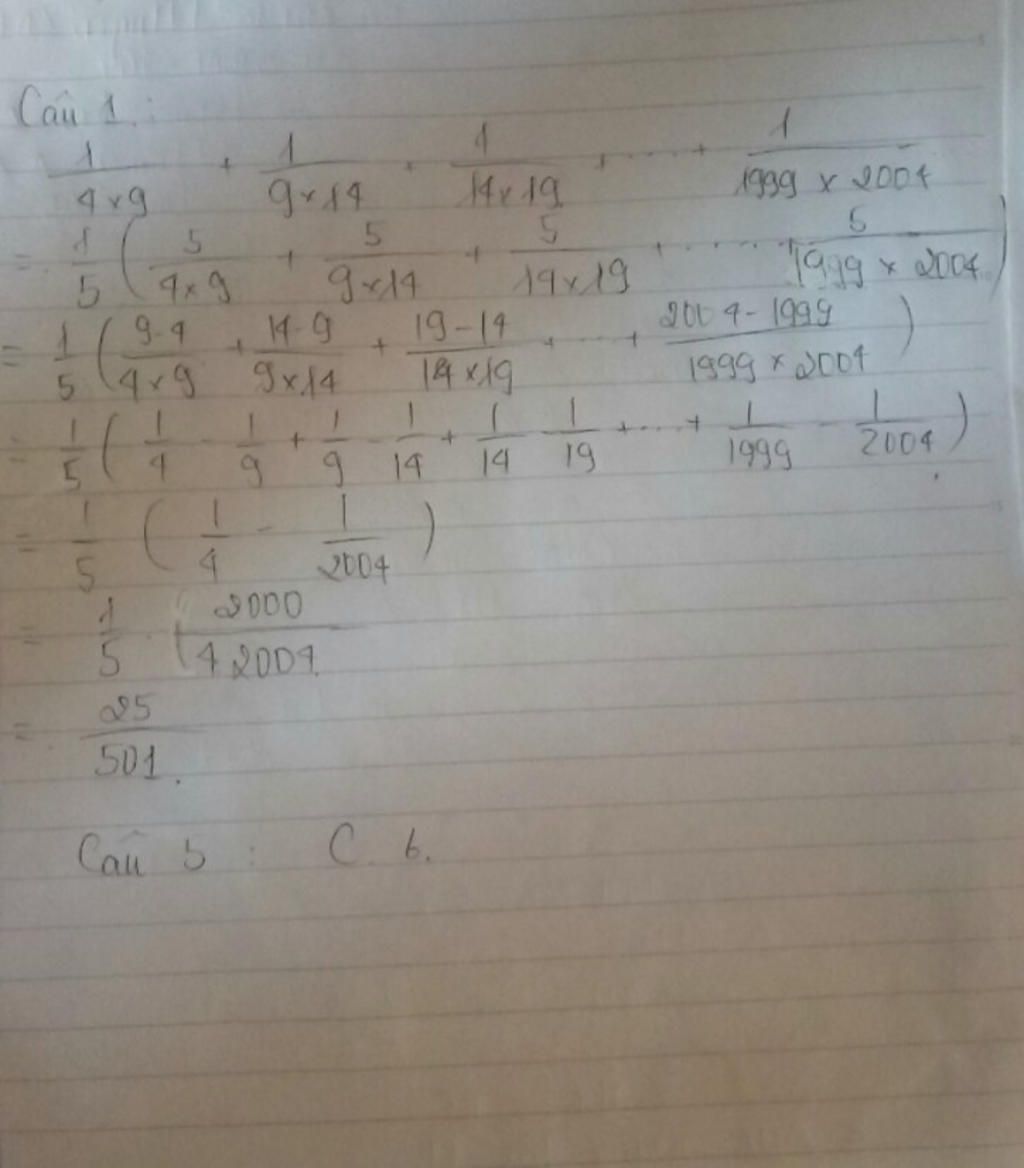 Câu 1:
1/4×9 + 1/9×14 + 1/14×19 + .... + 1/1999 × 2004
= 1/5 ( 5/4×9 + 5/9×14 + 5/14×19 + ..... + 5/1999 × 2004 )
= 1/5 ( 9-4/4×9 + 14-9/9×14 + 19-14/14×19 + ... + 2004-1999/1999 × 2004 )
= 1/5 ( 1/4 - 1/9 + 1/9 - 1/14 + 1/14 - 1/19 + ... + 1/1999 - 1/2004 )
= 1/5 ( 1/4 - 1/2004 )
= 1/5 . 2000/4.2004
= 25/501.
Câu 5 : C. 6.